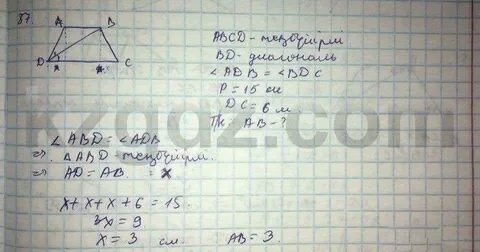 87
A B
D C
ABCD - теңбүйірлі
BD - диагональ
∠ADB = ∠BDC
P = 15 см
DC = 6 м
Т/к: AB - ?
∠ABD = ∠ADB
=> △ABD - теңбүйірлі.
=> AD = AB. = x
x + x + x + 6 = 15.
3x = 9
x = 3 см. AB = 3.
kzgdz.com